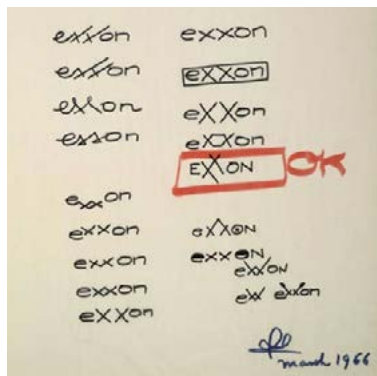 exxon exxon
exxon exxon
exxon eXXon
exxon eXXon
EXXON OK
exxon
exxon eXXON
exxon exxON
exxon exXON
exxon exx exxon
eXXon
march 1966